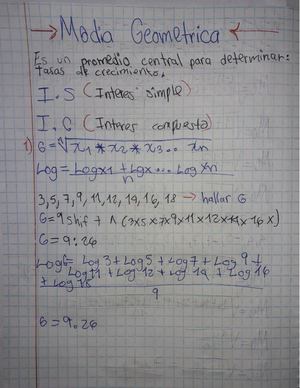 → Media Geometrica ←
Es un promedio central para determinar:
tasas de crecimiento.
I.S (Interes simple)
I.C (Interes compuesto)
1) G = ⁿ√x1 * x2 * x3 .. xn
Log = Logx1 + Lgx ... Log xn
n
3, 5, 7, 9, 11, 12, 14, 16, 18 → hallar G
G = 9 shif + ∧ (3x5x7x9x11x12x14x16x)
G = 9.26
LogG = Log 3 + Log 5 + Log 7 + Log 9 +
Log 11 + Log 12 + Log 14 + Log 16
+ Log 18
9
G = 9.26